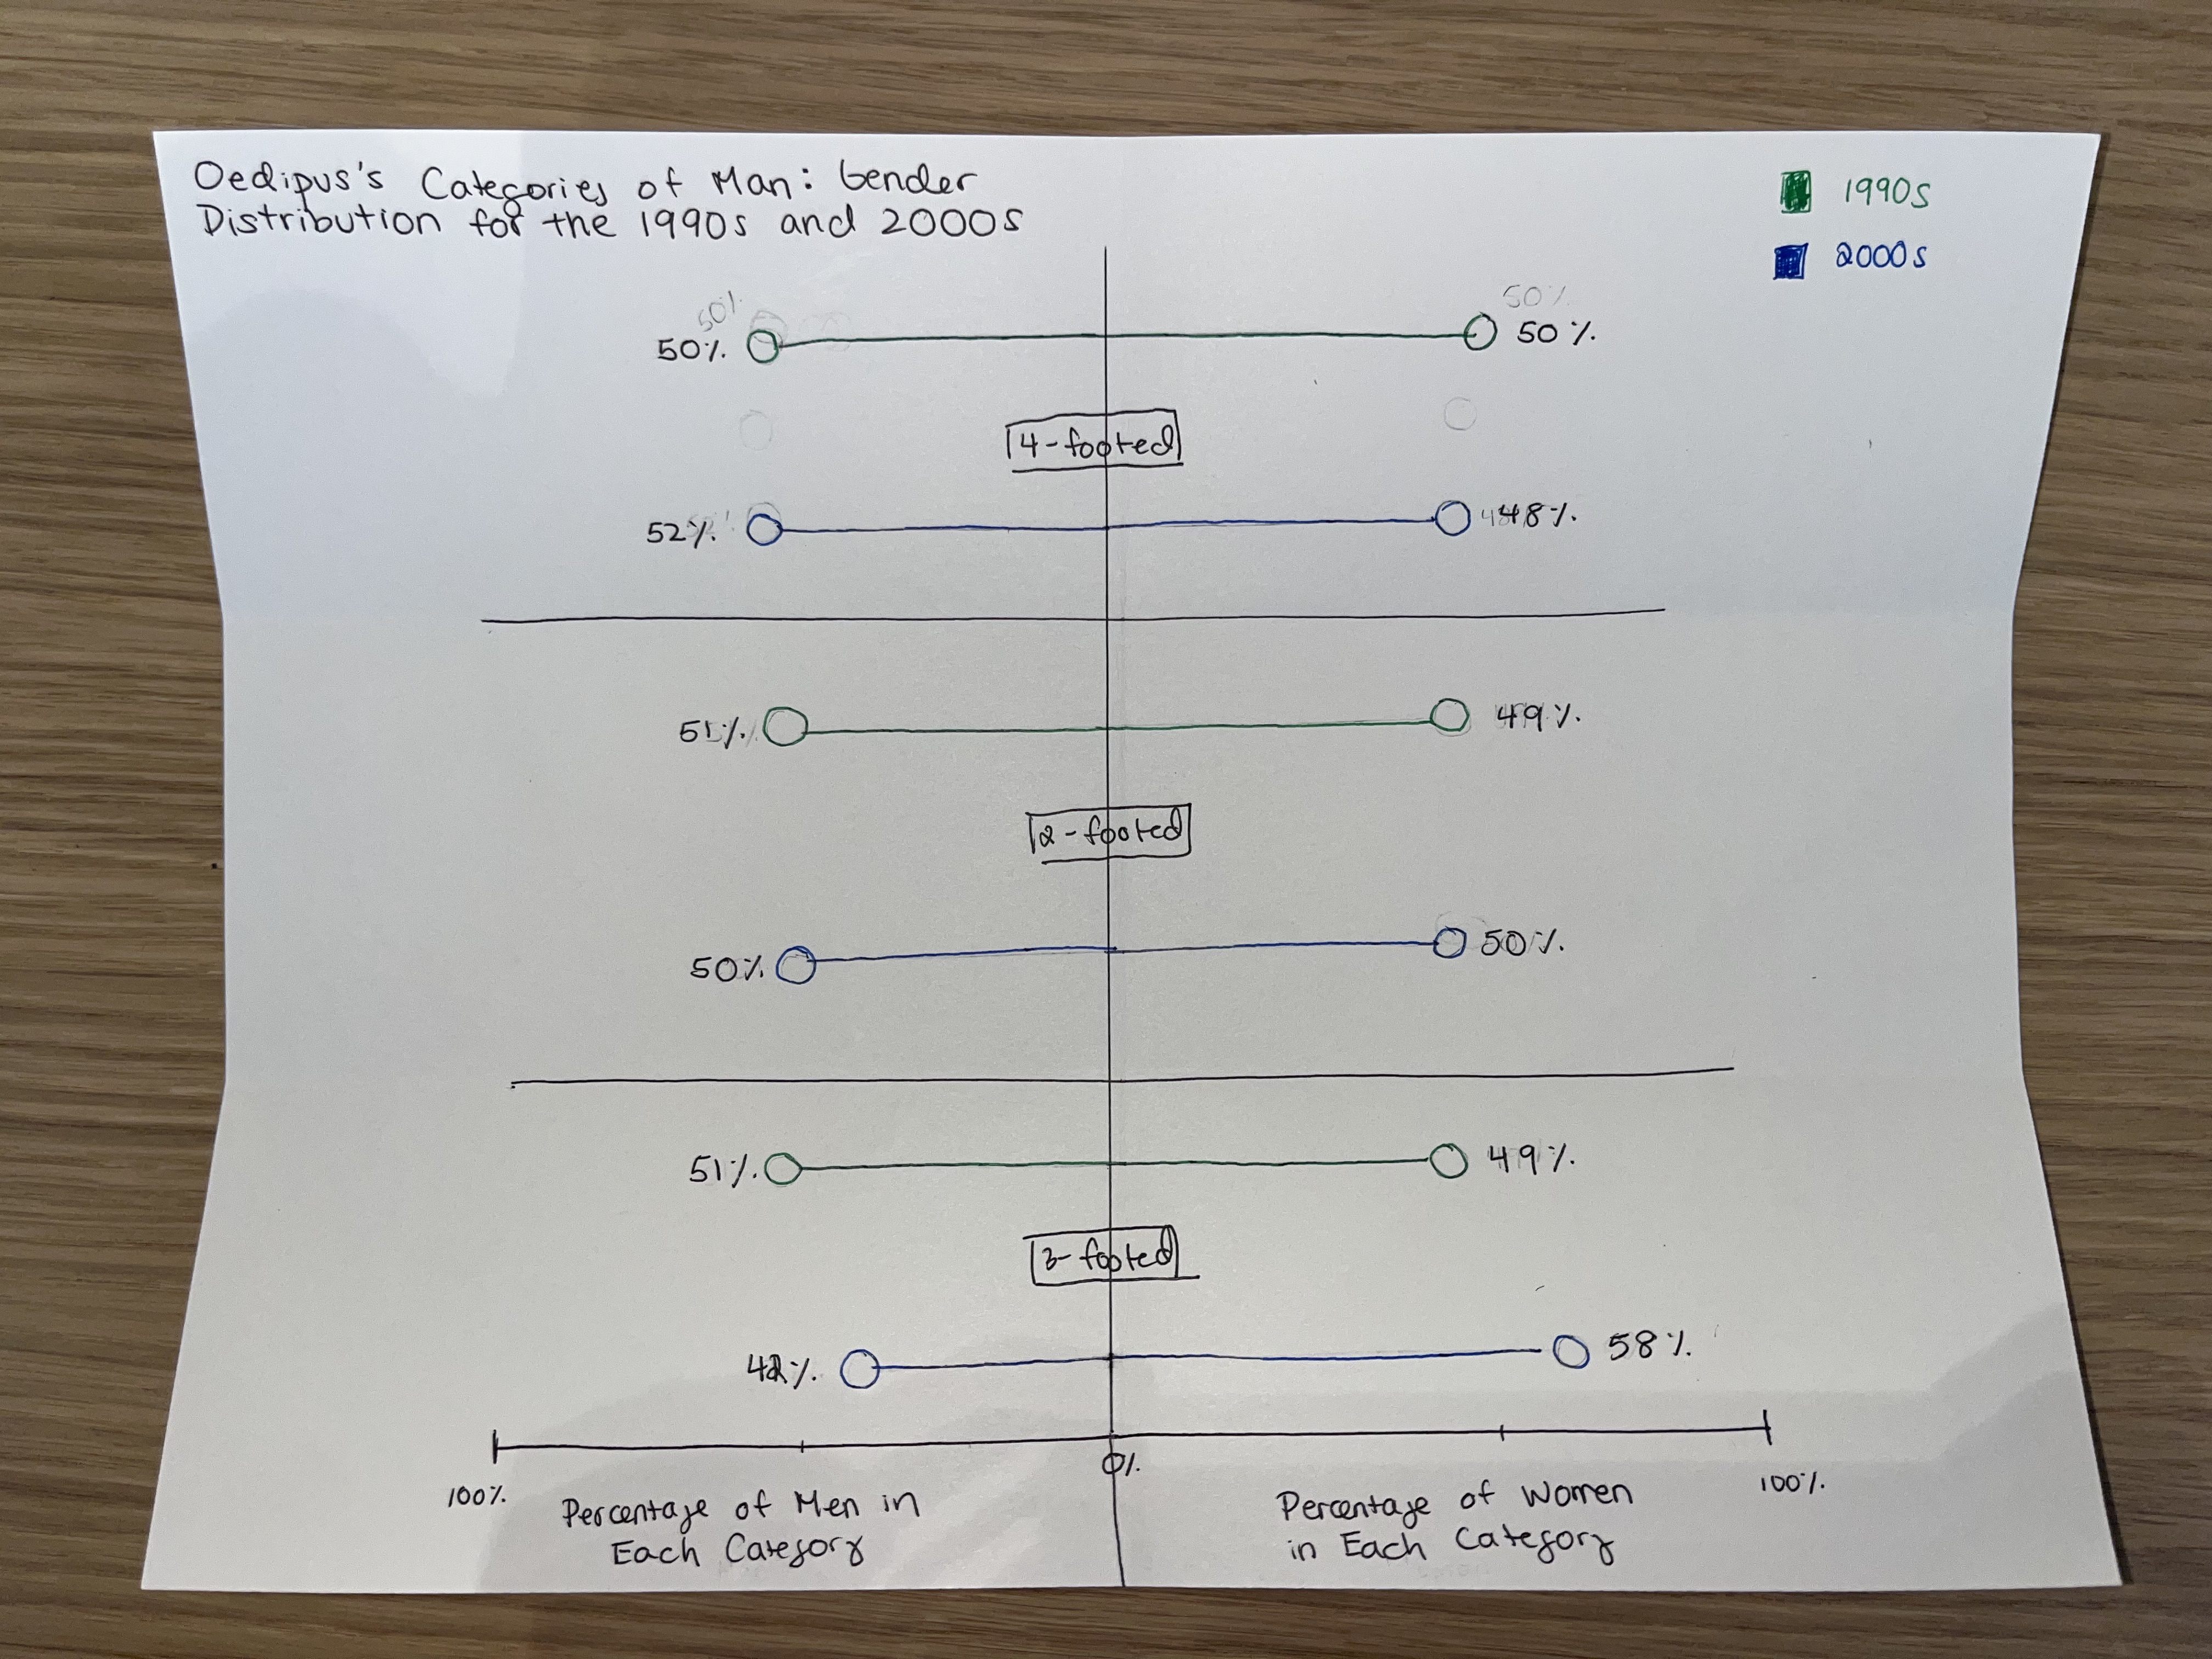 Oedipus's Categories of Man: Gender
Distribution for the 1990s and 2000s
1990s
2000s
50%
50%
50%
50%
4-footed
52%
48%
51%
49%
2-footed
50%
50%
51%
49%
3-footed
42%
58%
100%
0%
100%
Percentage of Men in
Each Category
Percentage of Women
in Each Category